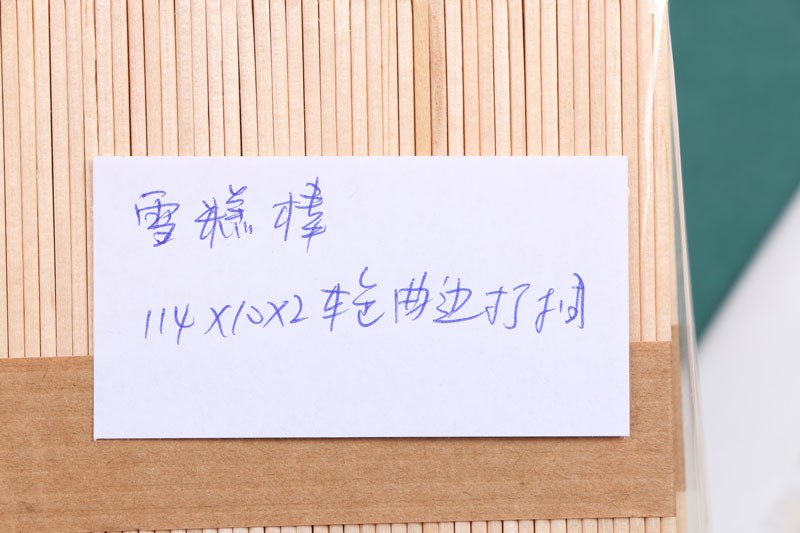 雪糕棒
114X10X2 曲边打捆